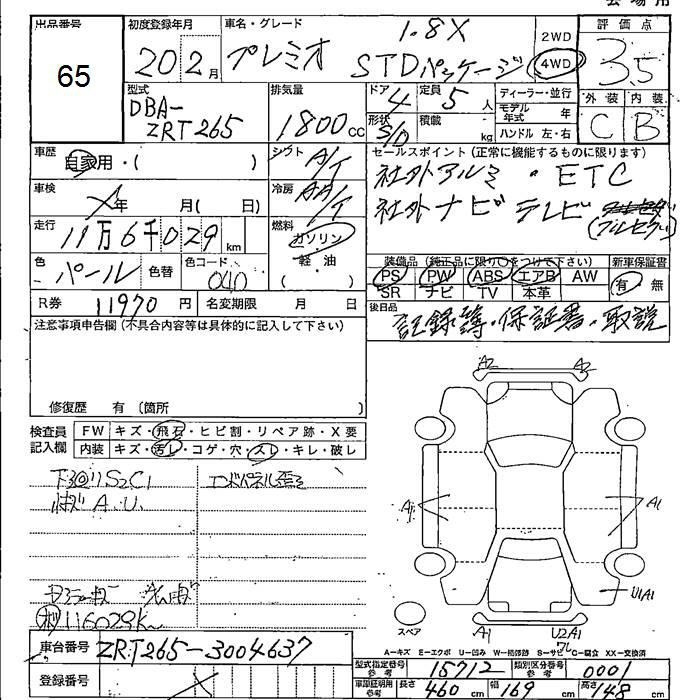 出品番号
65
初度登録年月
20 2月
車名・グレード
プレミオ 1.8X
STDパッケージ
2WD
4WD
評価点
3.5
外装 内装
C B
型式
DBA-
ZRT265
排気量
1800cc
ドア 4
定員 5人
形状 S/D
積載 kg
ディーラー・並行
モデル年式 年
ハンドル 左・右
車歴
自家用・( )
シフト A/T
セールスポイント(正常に機能するものに限ります)
社外アルミ・ETC
社外ナビ テレビ
(フルセグ)
車検
年 月( 日)
冷房 AA/C
走行
11万6千029km
燃料
ガソリン
軽・油
色 パール
色替
色コード 040
装備品(純正品に限り○をつけて下さい)
PS PW ABS エアB AW
SR ナビ TV 本革
新車保証書
有 無
R券 11970円
名変期限 月 日
後日品
記録簿・保証書・取説
注意事項申告欄(不具合内容等は具体的に記入して下さい)
修復歴 有 〔箇所
検査員記入欄
FW キズ・飛石・ヒビ割・リペア跡・X要
内装 キズ・汚レ・コゲ・穴・スレ・キレ・破レ
S2C1
エンドパネル歪
A.U.
116029K
A2 A2
A1 A1
U1A1
スペア
A1 U2A1
A=キズ E=エクボ U=凹み W=補修跡 S=サビ C=腐食 XX=交換済
車台番号 ZRT265-3004637
登録番号
型式指定番号参考 15712
類別区分番号参考 0001
車庫証明用参考
長さ 460cm 幅 169cm 高さ 148cm